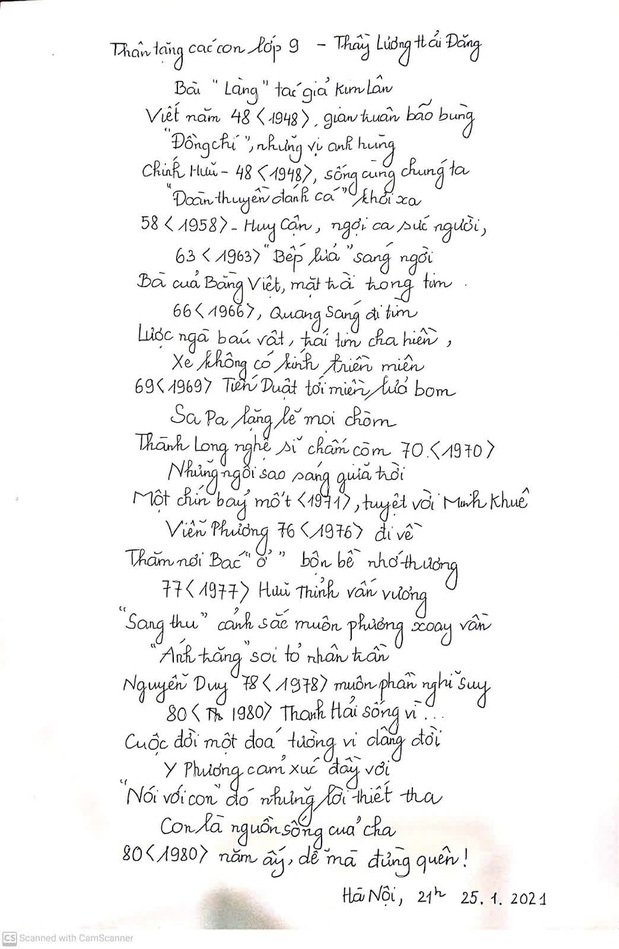 Thân tặng các con lớp 9 - Thầy Lương Hải Đăng
Bài "Làng" tác giả Kim Lân
Viết năm 48 <1948>, gian truân bão bùng
"Đồng chí", những vị anh hùng
Chính Hữu - 48 <1948>, sống cùng chúng ta
"Đoàn thuyền đánh cá" khơi xa
58 <1958> - Huy Cận, ngợi ca sức người,
63 <1963> "Bếp lửa" sáng ngời
Bà của Bằng Việt, mặt trời trong tim.
66 <1966>, Quang Sáng đi tìm
Lược ngà báu vật, trái tim cha hiền,
Xe không có kính triền miên
69 <1969> Tiến Duật tới miền lửa bom
Sa Pa lặng lẽ mọi chòm
Thành Long nghệ sĩ chấm còm 70. <1970>
Những ngôi sao sáng giữa trời
Một chín bảy một <1971>, tuyệt vời Minh Khuê
Viễn Phương 76 <1976> đi về
Thăm nơi Bác "ở" bộn bề nhớ thương
77 <1977> Hữu Thỉnh vấn vương
"Sang thu" cảnh sắc muôn phương xoay vần
"Ánh trăng" soi tỏ nhân trần
Nguyễn Duy 78 <1978> muôn phần nghĩ suy
80 <1980> Thanh Hải sống vì...
Cuộc đời một đoá tường vi dâng đời
Y Phương cảm xúc đầy vơi
"Nói với con" đó những lời thiết tha
Con là nguồn sống của cha
80 <1980> năm ấy, dễ mà đừng quên!
Hà Nội, 21h 25.1.2021
CS Scanned with CamScanner